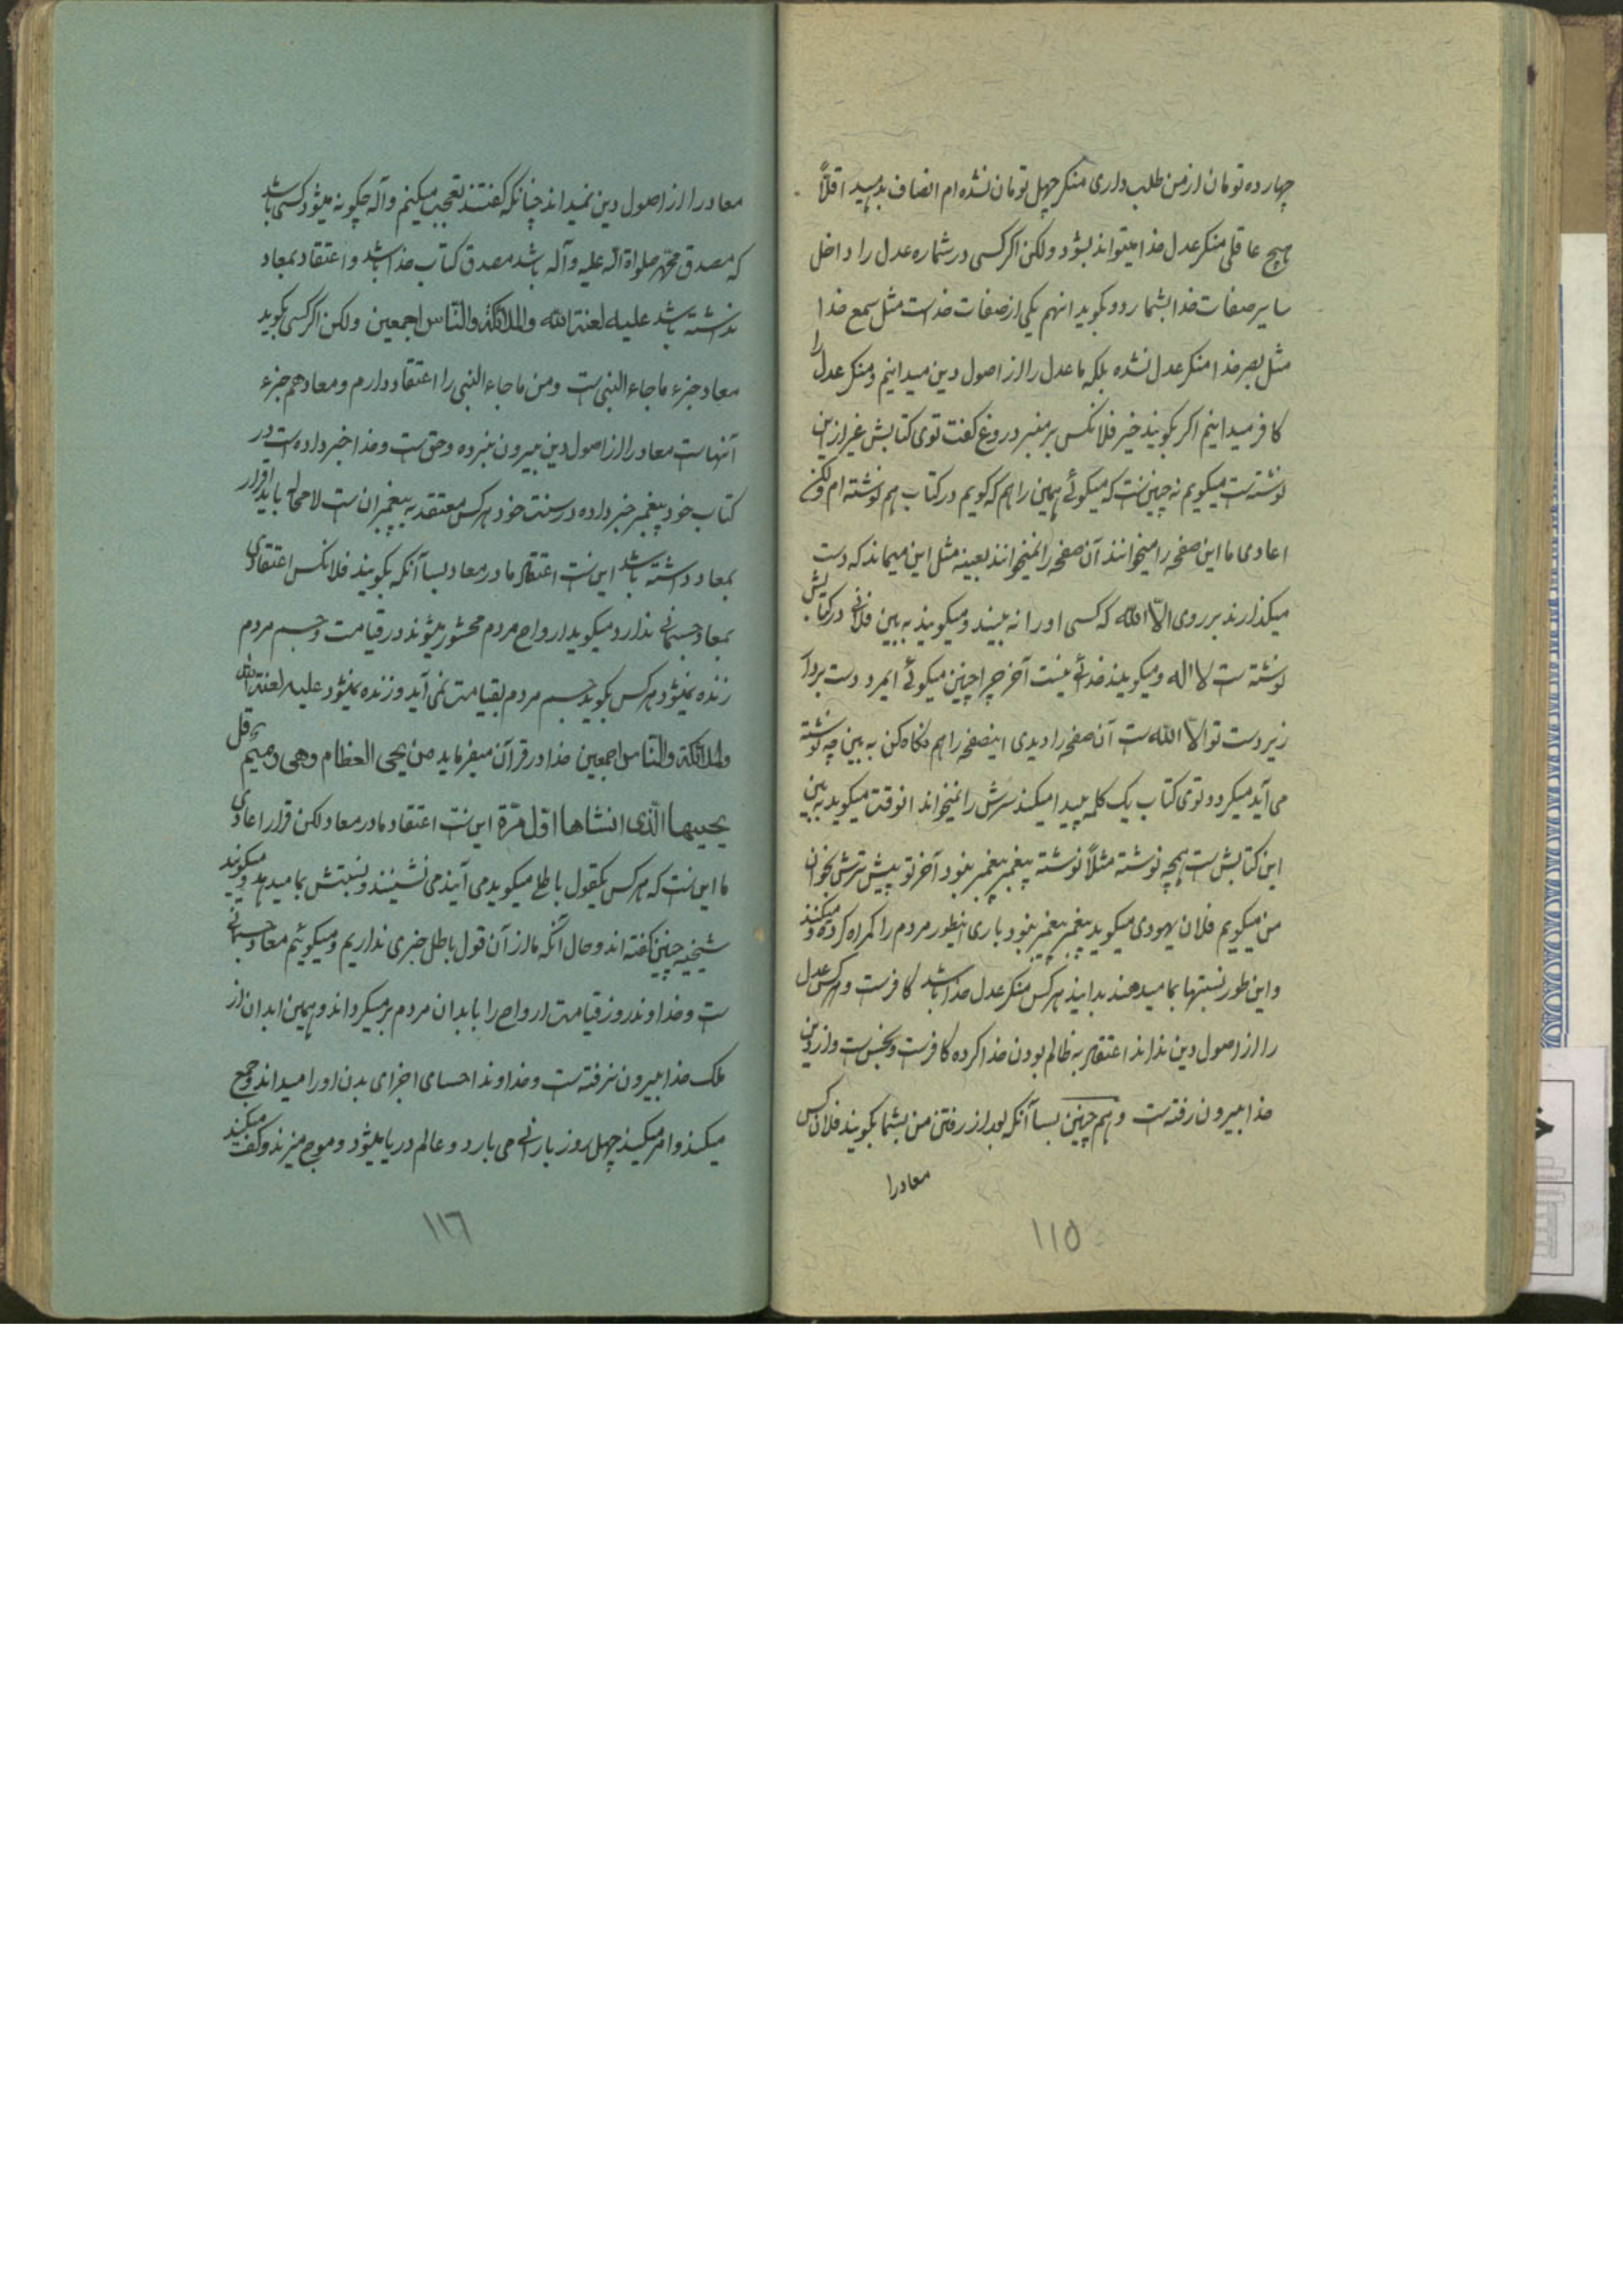 چهارده تومان از من طلب داری منکر چهل تومان نشده ام انصاف بدهید اقلاً
هیچ عاقلی منکر عدل خدا میتواند بشود ولکن اگر کسی در شماره عدل را داخل
سایر صفات خدا بشمارد و بگوید انهم یکی از صفات خداست مثل سمع خدا
مثل بصر خدا منکر عدل نشده بلکه ما عدل را از اصول دین میدانیم و منکر عدل را
کافر میدانیم اگر بگویند خیر فلانکس بر منبر دروغ گفت توی کتابش غیر از این
نوشته است میگویم نه چنین است که میگوئے همین را هم که گویم در کتاب هم نوشته ام ولکن
اعادی ما این صفحه را میخوانند آن صفحه را نمیخوانند بعینه مثل این میماند که دست
میگذارند بر روی الّا الله که کسی او را نه بیند و میگویند به بین فلانی در کتابش
نوشته است لا اله و میگویند خدائی نیست آخر چرا چنین میگوئے ایمرد دست بردار
زیر دست تو الّا الله است آن صفحه را دیدی اینصفحه را هم نگاه کن به بین چه نوشته
می آید میگردد و توی کتاب یک کلمه پیدا میکند سرش را نمیخواند انوقت میگوید به بین
این کتابش است همچه نوشته مثلاً نوشته پیغمبر پیغمبر نبود آخر تو پیش ترش بخوان
من میگویم فلان یهودی میگوید پیغمبر پیغمبر نبود باری اینطور مردم را گمراه کرده و میکنند
و این طور نسبتها بما میدهند بدانید هر کس منکر عدل خدا باشد کافر است و هر کس عدل
را از اصول دین نداند اعتقاد به ظالم بودن خدا کرده کافر است و نجس است و از دین
خدا بیرون رفته است و هم چنین بسا آنکه بعد از رفتن من بشما بگویند فلان کس
معاد را
١١٥
معاد را از اصول دین نمیداند چنانکه گفتند تعجب میکنم واللّه چگونه میشود کسی باشد
که مصدق محمّد صلواة اللّه علیه و آله باشد مصدق کتاب خدا باشد و اعتقاد بمعاد
نداشته باشد علیه لعنة الله والملائکة والناس اجمعین ولکن اگر کسی بگوید
معاد جزء ما جاء النبی است و من ما جاء النبی را اعتقاد دارم و معاد هم جزء
آنهاست معاد را از اصول دین بیرون نبرده و حق است و خدا خبر داده است در
کتاب خود پیغمبر خبر داده در سنت خود هر کس معتقد به پیغمبران است لامحاله باید اقرار
بمعاد داشته باشد این است اعتقاد ما در معاد بسا آنکه بگویند فلانکس اعتقادی
بمعاد جسمانے ندارد و میگوید ارواح مردم محشور میشوند در قیامت و جسم مردم
زنده نمیشود هر کس بگوید جسم مردم بقیامت نمی آید و زنده نمیشود علیه لعنة الله
والملائکة والناس اجمعین خدا در قرآن میفرماید من یحیی العظام وهی رمیم قل
یحییها الّذی انشاها اوّل مرّة این است اعتقاد ما در معاد لکن قرار اعادی
ما این است که هر کس یکقول باطلی میگوید می آیند می نشینند و نسبتش بما میدهند و میگویند
شیخیه چنین گفته اند و حال آنکه ما از آن قول باطل خبری نداریم و میگوئیم معاد جسمانے
است و خداوند روز قیامت ارواح را بابدان مردم برمیگرداند و همین ابدان از
ملک خدا بیرون نرفته است و خداوند احصای اجزای بدن او را میداند و جمع
میکند و امر میکند چهل روز بارانے می بارد و عالم دریا میشود و موج میزند و کف میکند
١١٦